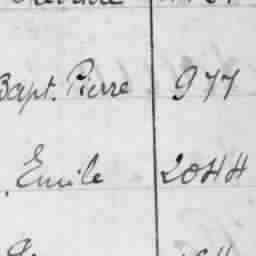 Bapt. Pierre 977
Emile 2044